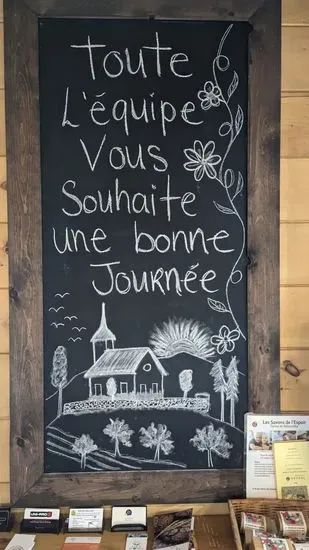 Toute
L'équipe
Vous
Souhaite
une bonne
Journée
Les Savons de l'Espoir